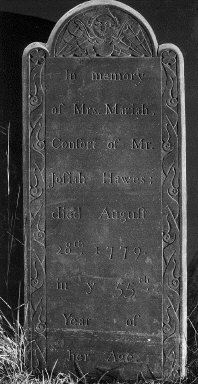 In memory
of Mrs. Mariah,
Confort of Mr.
Jofiah Hawes;
died Auguft
28th, 1779.
in ye 55th
Year of
her Age.